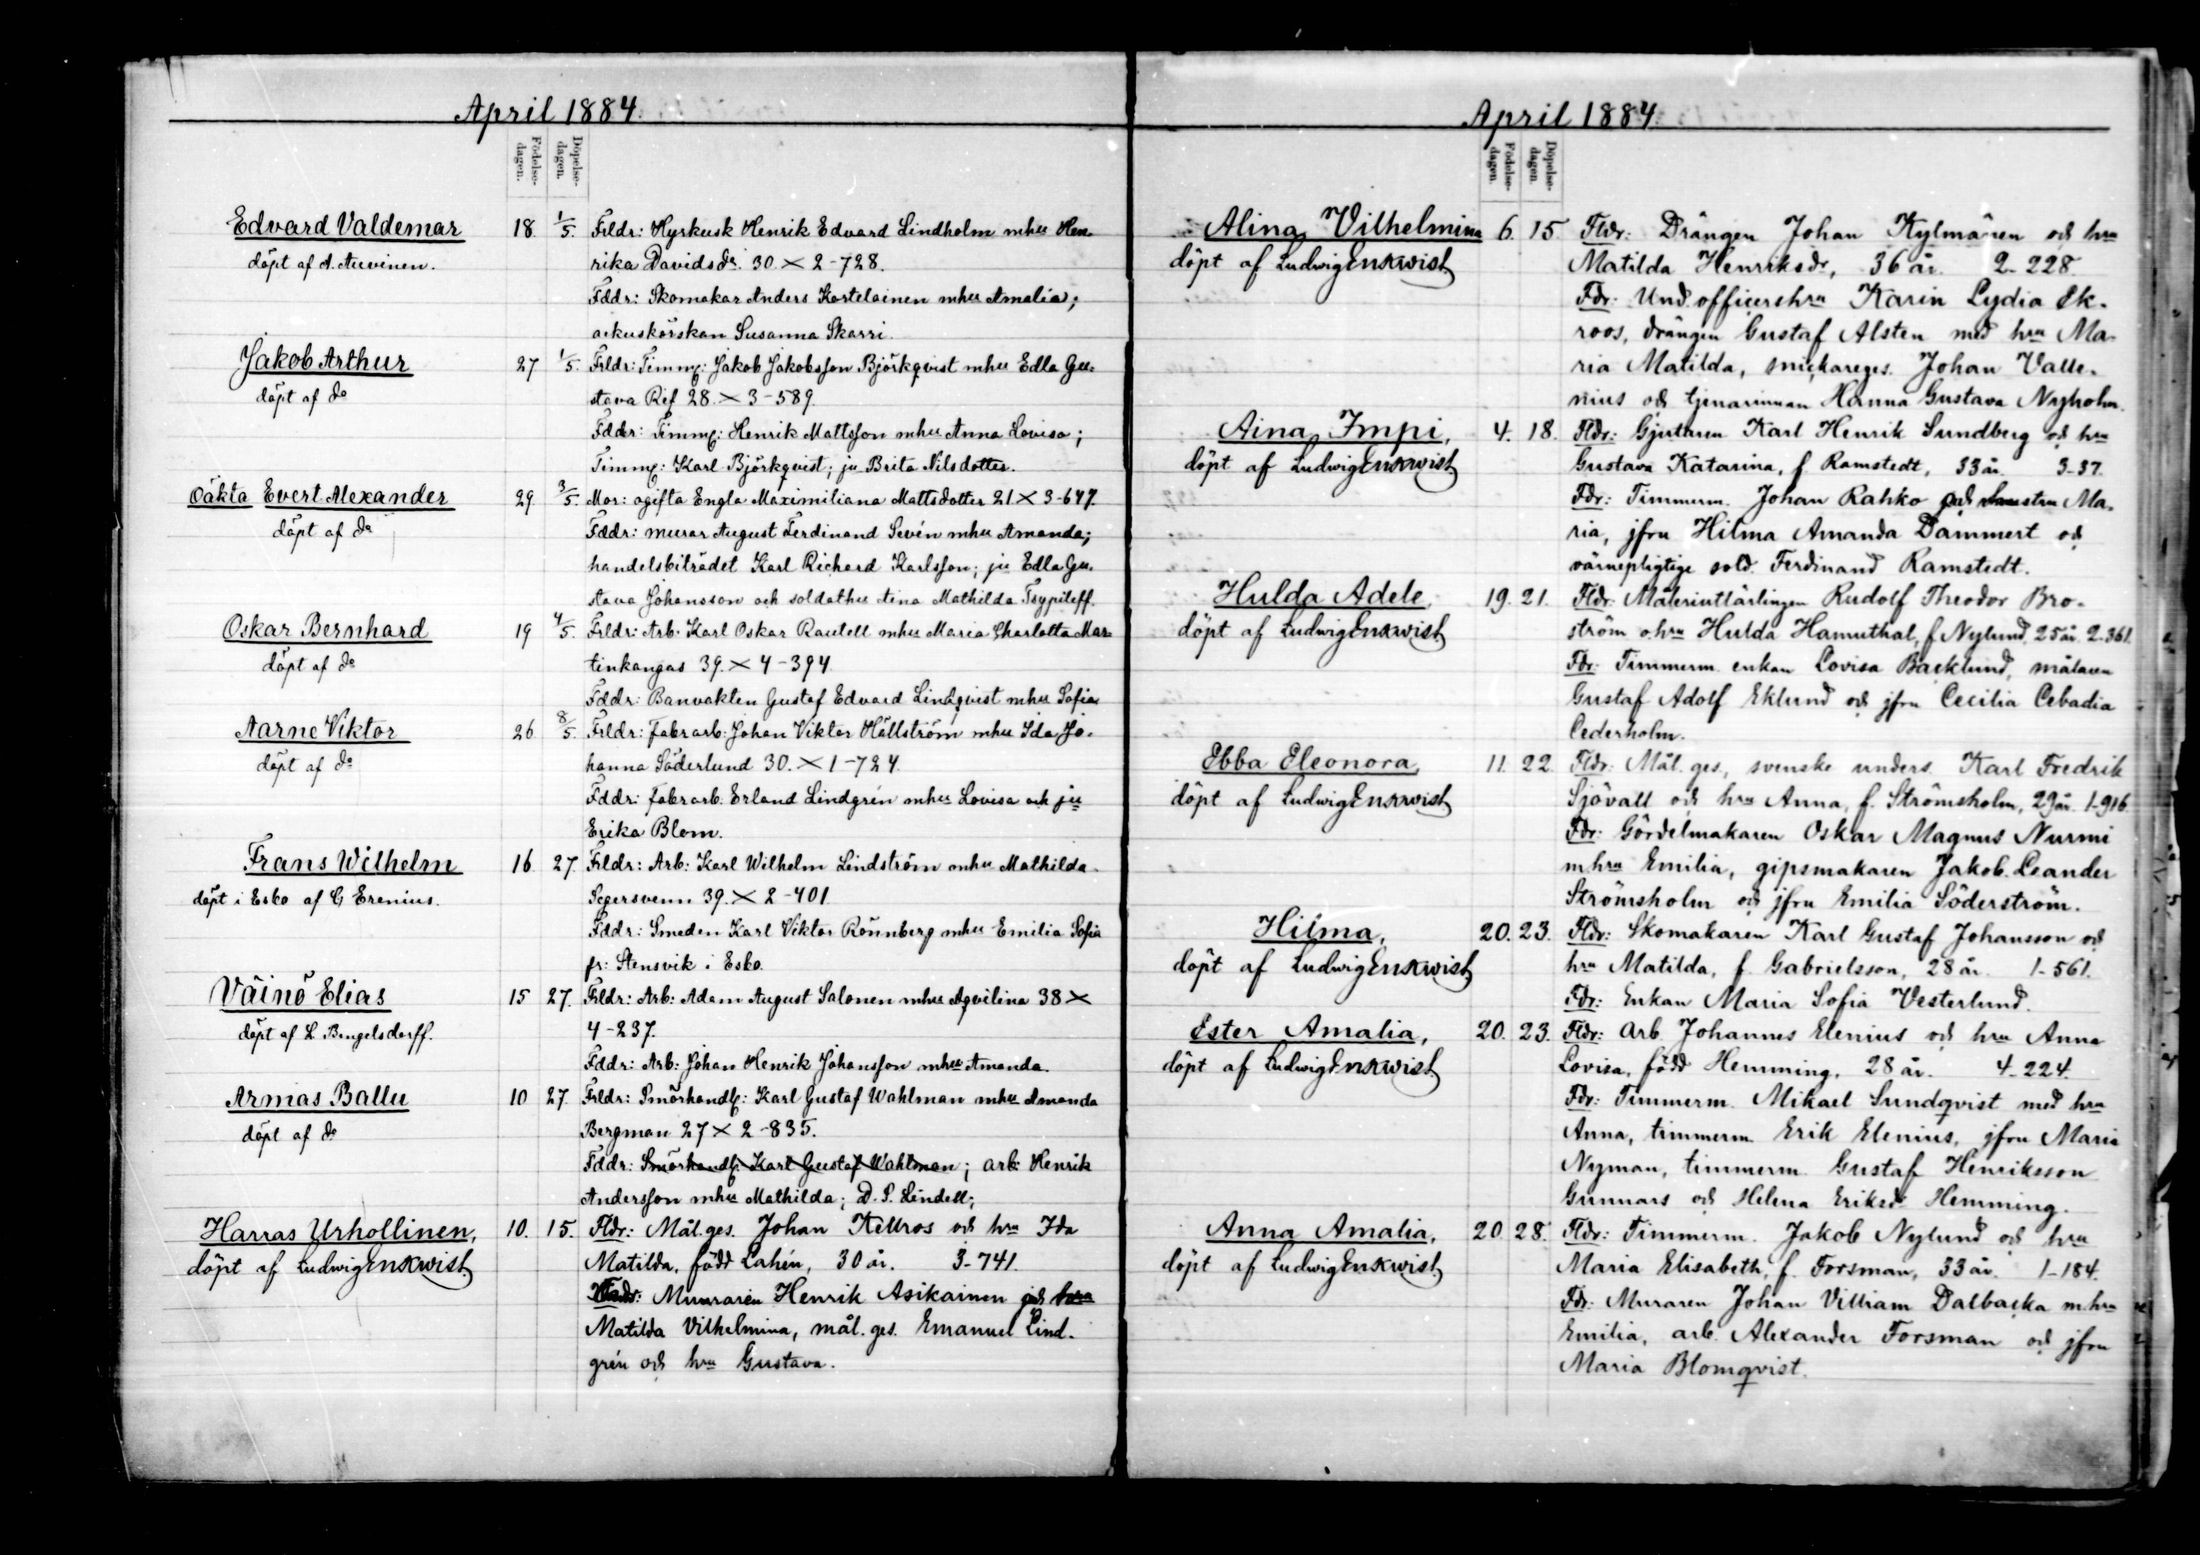 April 1884.
Födelse-
dagen.
Döpelse-
dagen.
Edvard Valdemar 18. 1/5. Frldr: Hyrkusk Henrik Edvard Lindholm mhu Hen-
döpt af A. Auvinen. rika Davidsdr. 30. × 2-728.
Fddr: Skomakar Anders Kortelainen mhu Amalia;
Susanna Skarri.
Jakob Arthur 27 1/5. Frldr: Timmg: Jakob Jakobsson Björkqvist mhu Edla Gu-
döpt af do stava Ref 28. × 3-589.
Fddr: Timmg: Henrik Mattsson mhu Anna Lovisa;
Timmg: Karl Björkqvist; ju Brita Nilsdotter.
Oäkta Evert Alexander 29. 3/5. Mor: ogifta Engla Maximiliana Mattsdotter 21 × 3-647.
döpt af do Fddr: murar August Ferdinand Sevén mhu Amanda;
handelsbiträdet Karl Richard Karlsson; ju Edla Gu-
stava Johansson och soldathu Aina Mathilda Tsypileff.
Oskar Bernhard 19 4/5. Frldr: Arb: Karl Oskar Rautell mhu Maria Charlotta Mar-
döpt af do tinkangas 39. × 4-394.
Fddr: Banvakten Gustaf Edvard Lindqvist mhu Sofia
Aarne Viktor 26 8/5. Frldr: fabr arb: Johan Viktor Hällström mhu Ida Jo-
döpt af do hanna Söderlund 30. × 1-724.
Fddr: fabr arb. Erland Lindgrén mhu Lovisa och ju
Erika Blom.
Frans Wilhelm 16 27. Frldr: Arb: Karl Wilhelm Lindström mhu Mathilda
döpt i Esbo af G Erenius. Segersvenn 39. × 2-401.
Fddr: Smeden Karl Viktor Rönnberg mhu Emilia Sofia
fr: Stensvik i Esbo.
Väinö Elias 15 27. Frldr: Arb: Adam August Salonen mhu Aqvilina 38 ×
döpt af L. Bengelsdorff. 4-237.
Fddr: Arb: Johan Henrik Johansson mhu Amanda.
Armas Ballu 10 27. Frldr: Smörhandl: Karl Gustaf Wahlman mhu Amanda
döpt af do Bergman 27 × 2-835.
Fddr: Smörhandl: Karl Gustaf Wahlman; arb: Henrik
Andersson mhu Mathilda; D. S. Lindell;
Harras Urhollinen, 10. 15. Fldr: Mål. ges. Johan Kellros och hru Ida
döpt af Ludwig Enkwist. Matilda, född Lahén, 30 år. 3-741.
Fadr: Muuraren Henrik Asikainen och hru
Matilda Vilhelmina, mål. ges. Emanuel Lind-
grén och hru Gustava.
April 1884.
Födelse-
dagen.
Döpelse-
dagen
Alina Vilhelmina 6. 15. Fldr: Drängen Johan Kylmänen och hru
döpt af Ludwig Enkwist. Matilda Henriksdr, 36 år. 2-228.
Fdr: Und. officershru Karin Lydia Ek-
roos, drängen Gustaf Alsten med hru Ma-
ria Matilda, snickareges. Johan Valle-
nius och tjenarinnan Hanna Gustava Nyholm.
Aina Impi, 4. 18. Fldr: Gjutaren Karl Henrik Sundberg och hru
döpt af Ludwig Enkwist. Gustava Katarina, f. Ramstedt, 33 år. 3-37.
Fdr: Timmerm. Johan Rahko och hustru Ma-
ria, jfru Hilma Amanda Dammert och
värnepligtige sold. Ferdinand Ramstedt.
Hulda Adele, 19. 21. Fldr: Målerilärlingen Rudolf Theodor Bro-
döpt af Ludwig Enkwist. ström o. hru Hulda Hamuthal, f. Nylund, 25 år. 2-361.
Fdr: Timmerm. enkan Lovisa Backlund, målaren
Gustaf Adolf Eklund och jfru Cecilia Cebadia
Cederholm.
Ebba Eleonora, 11. 22. Fldr: Mål. ges., svenske unders. Karl Fredrik
döpt af Ludwig Enkwist. Sjövall och hru Anna, f. Strömsholm, 29 år. 1-916.
Fdr: Gördelmakaren Oskar Magnus Nurmi
m. hru Emilia, gipsmakaren Jakob Leander
Strömsholm och jfru Emilia Söderström.
Hilma, 20. 23. Fldr: Skomakaren Karl Gustaf Johansson och
döpt af Ludwig Enkwist. hru Matilda, f. Gabrielsson, 28 år. 1-561.
Fdr: Enkan Maria Sofia Vesterlund.
Ester Amalia, 20. 23. Fldr: Arb. Johannes Elenius och hru Anna
döpt af Ludwig Enkwist. Lovisa, född Hemming, 28 år. 4-224.
Fdr: Timmerm. Mikael Sundqvist med hru
Anna, timmerm. Erik Elenius, jfru Maria
Nyman, timmerm. Gustaf Henriksson
Gunnars och Helena Eriksdr Hemming.
Anna Amalia, 20 28. Fldr: Timmerm. Jakob Nylund och hru
döpt af Ludwig Enkwist. Maria Elisabeth, f. Forsman, 33 år. 1-184.
Fdr: Muraren Johan Villiam Dalbacka m. hru
Emilia, arb. Alexander Forsman och jfru
Maria Blomqvist.